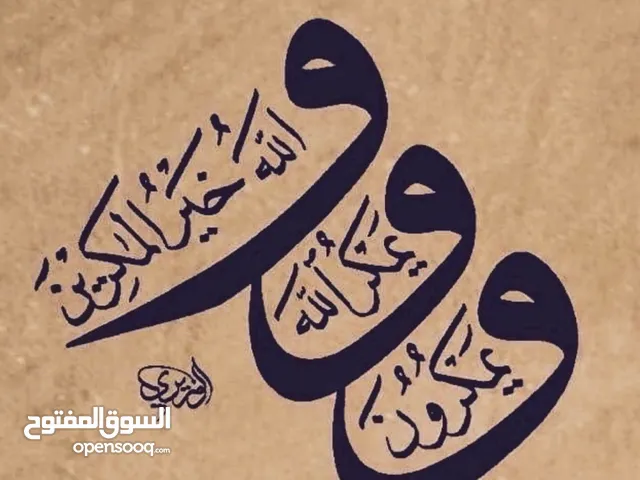 ويمكرون
ويمكر الله
والله خير الماكرين
السوق المفتوح
opensooq.com